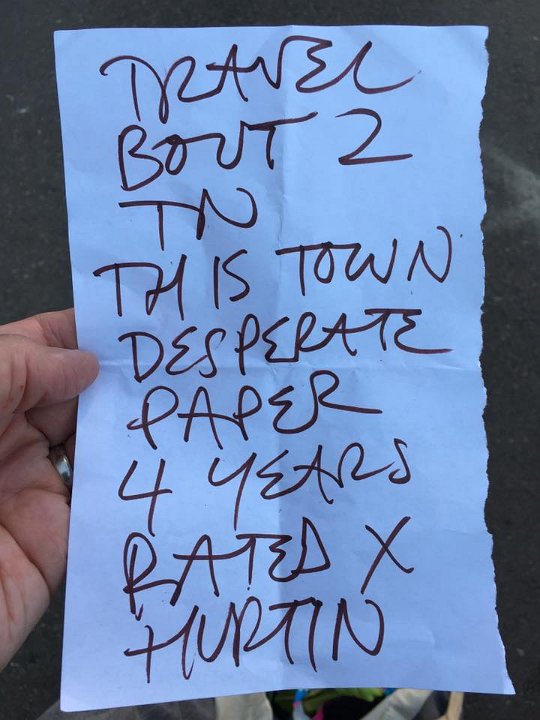 TRAVEL
BOUT 2
TN
THIS TOWN
DESPERATE
PAPER
4 YEARS
RATED X
HURTIN